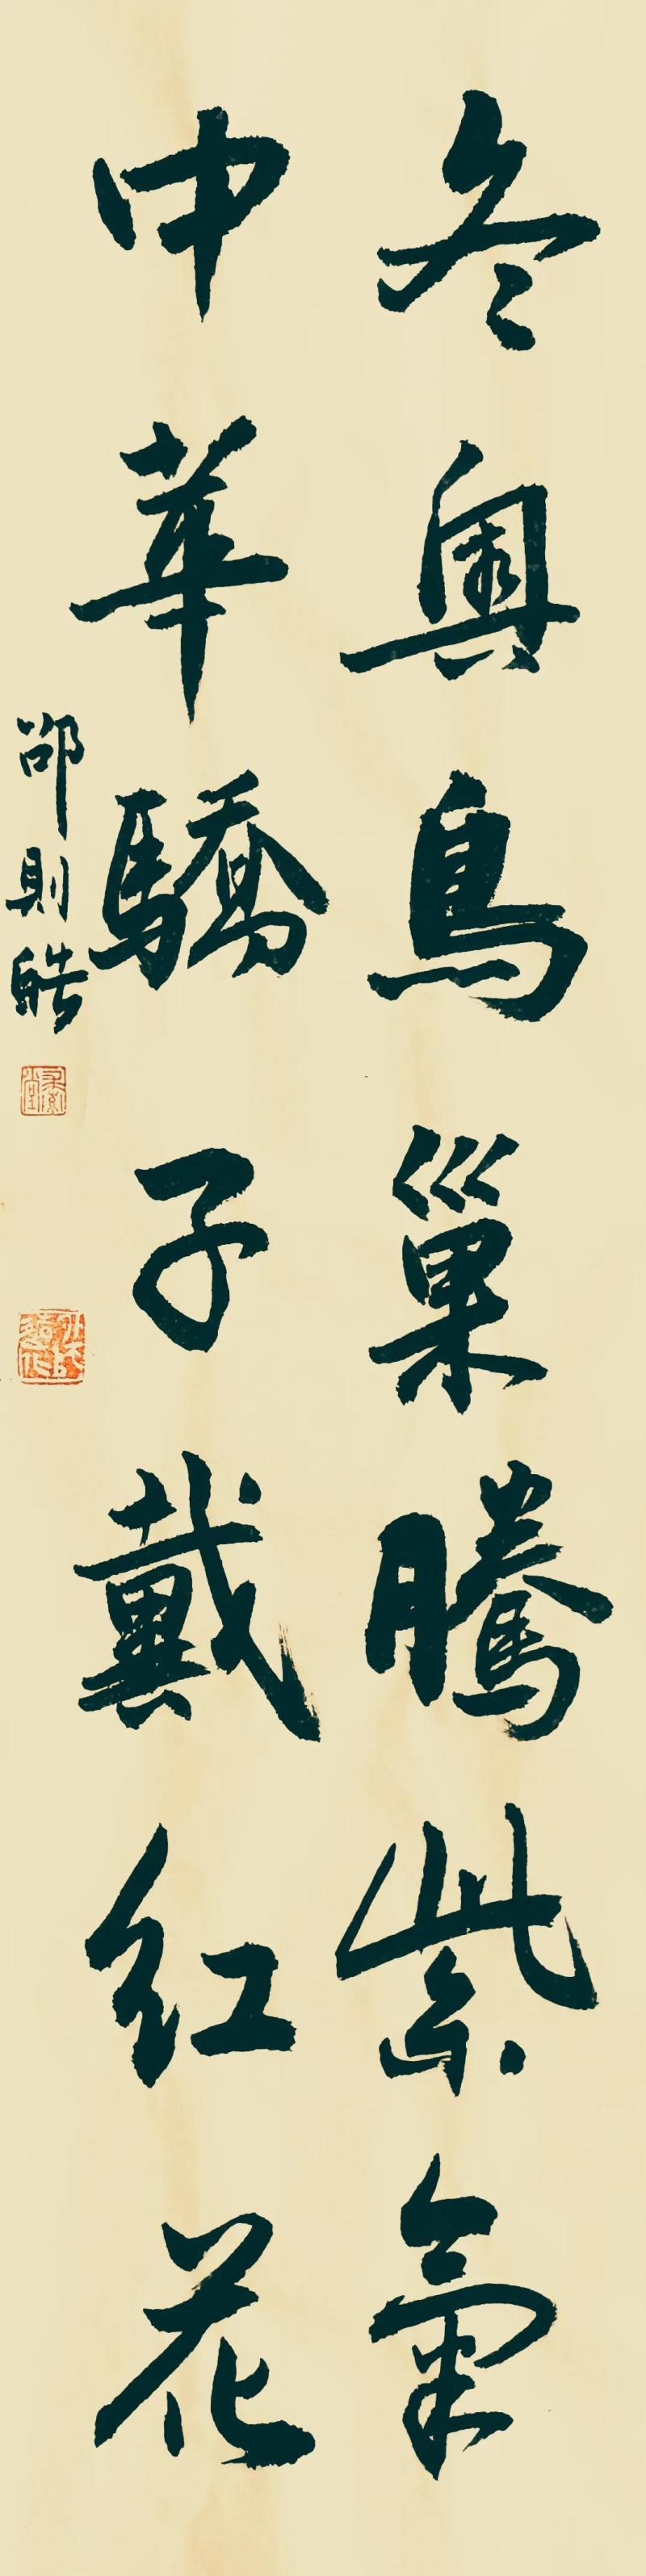 冬奥鳥巢騰紫氣
中華驕子戴红花
邵則皓